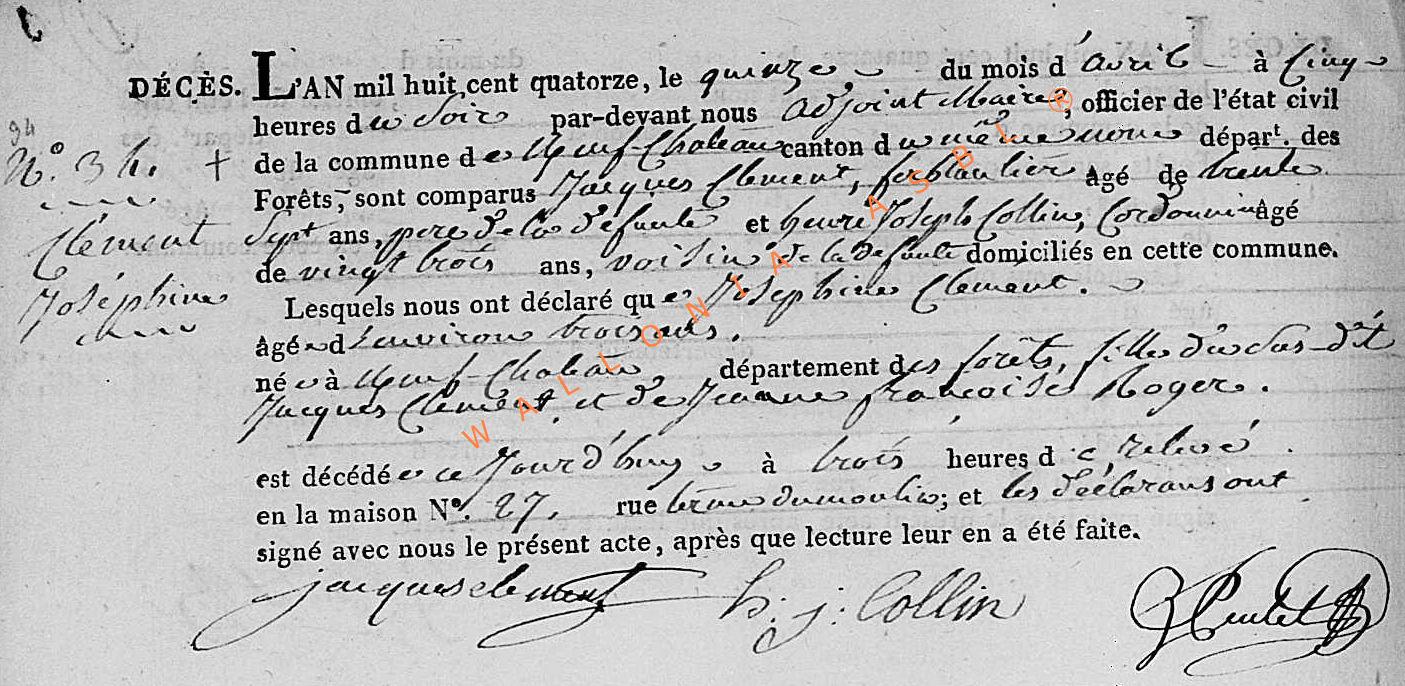 DÉCÈS. L'AN mil huit cent quatorze, le quinze du mois d'avril à Cinq
heures du Soir par-devant nous adjoint Maire, officier de l'état civil
94
N.° 34. + de la commune de Neuf-Chateau canton du même nom départ. des
Forêts, sont comparus Jacques Clement, ferblantier âgé de trente
Clément Sept ans, pere de la defunte et henri Joseph Collin, Cordonnier âgé
de vingt trois ans, voisin de la defunte domiciliés en cette commune.
Joséphine Lesquels nous ont déclaré que Josephine Clement.
âgée d'environ trois ans.
née à Neuf-Chateau, département des forêts, fille du sus-dit
Jacques Clement, et de Jeanne françoise Roger.
est décédée ce Jourd'huy à trois heures de relevé.
en la maison N°. 27, rue du moulin; et les déclarans ont
signé avec nous le présent acte, après que lecture leur en a été faite.
jacques clement h: j: Collin
WALLONIA ASBL ®